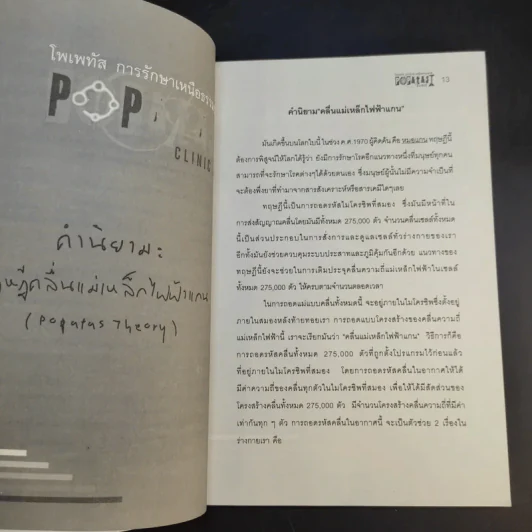 โพเพทัส การรักษาเหนือธรรม
POP
CLINIC
คำนิยามะ
ทฤษฎีคลื่นแม่เหล็กไฟฟ้าแกน
(Popatus Theory)
POPATAST 13
คำนิยาม"คลื่นแม่เหล็กไฟฟ้าแกน"
มันเกิดขึ้นบนโลกใบนี้ ในช่วง ค.ศ.1970 ผู้คิดค้น คือ ทฤษฎีนี้
ต้องการพิสูจน์ให้โลกได้รู้ว่า ยังมีการรักษาโรคอีกแนวทางหนึ่งที่มนุษย์ทุกคน
สามารถที่จะรักษาโรคต่างๆได้ด้วยตนเอง ซึ่งมนุษย์ผู้นั้นไม่มีความจำเป็นที่
จะต้องพึ่งยาที่ทำมาจากสารสังเคราะห์หรือสารเคมีใดๆเลย
ทฤษฎีนี้เป็นการถอดรหัสไมโครชิพที่สมอง ซึ่งมันมีหน้าที่ใน
การส่งสัญญาณคลื่นโดยมันมีทั้งหมด 275,000 ตัว จำนวนคลื่นเซลล์ทั้งหมด
นี้เป็นส่วนประกอบในการสั่งการและดูแลเซลล์ทั่วร่างกายของเรา
อีกทั้งมันยังช่วยควบคุมระบบประสาทและภูมิคุ้มกันอีกด้วย แนวทางของ
ทฤษฎีนี้ยังจะช่วยในการเติมประจุคลื่นความถี่แม่เหล็กไฟฟ้าในเซลล์
ทั้งหมด 275,000 ตัว ให้ครบตามจำนวนตลอดเวลา
ในการถอดแม่แบบคลื่นทั้งหมดนี้ จะอยู่ภายในไมโครชิพซึ่งตั้งอยู่
ภายในสมองหลังท้ายทอยเรา การถอดแบบโครงสร้างของคลื่นความถี่
แม่เหล็กไฟฟ้านี้ เราจะเรียกมันว่า "คลื่นแม่เหล็กไฟฟ้าแกน" วิธีการก็คือ
การถอดรหัสคลื่นทั้งหมด 275,000 ตัวที่ถูกตั้งโปรแกรมไว้ก่อนแล้ว
ที่อยู่ภายในไมโครชิพที่สมอง โดยการถอดรหัสคลื่นในอากาศให้ได้
มีค่าความถี่ของคลื่นทุกตัวในไมโครชิพที่สมอง เพื่อให้ได้มีสัดส่วนของ
โครงสร้างคลื่นทั้งหมด 275,000 ตัว มีจำนวนโครงสร้างคลื่นความถี่ที่มีค่า
เท่ากันทุก ๆ ตัว การถอดรหัสคลื่นในอากาศนี้ จะเป็นตัวช่วย 2 เรื่องใน
ร่างกายเรา คือ